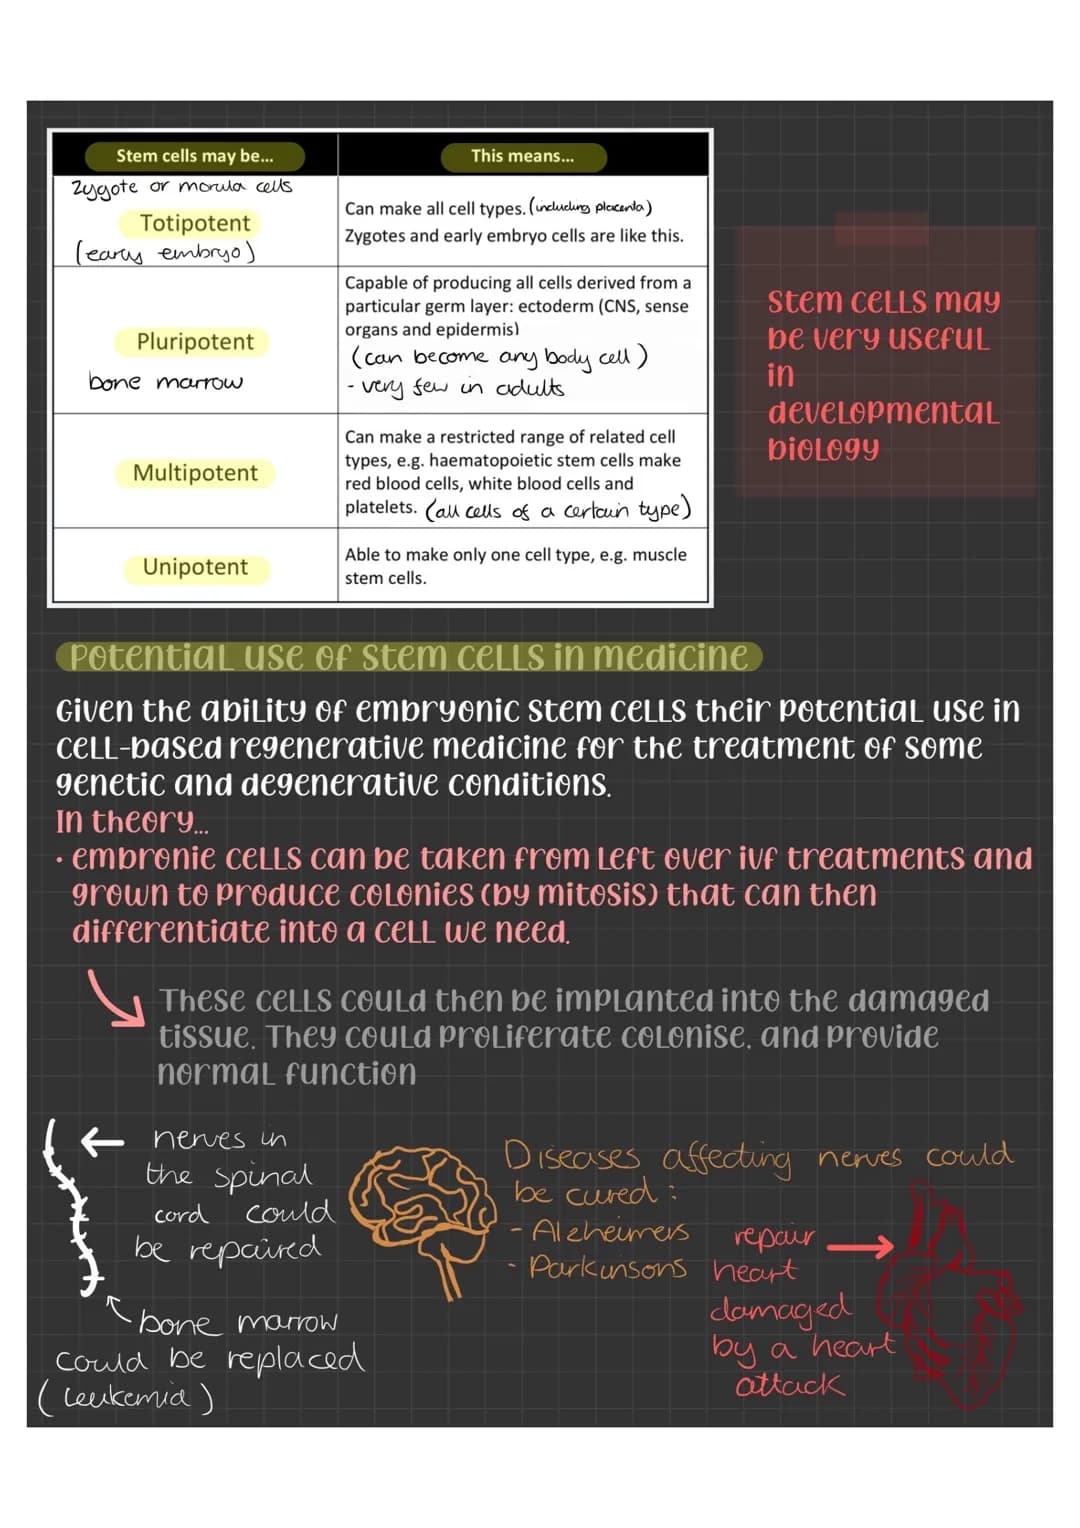 Stem cells may be...
This means...
Zygote or morula cells
Totipotent
(early embryo)
Can make all cell types. (including placenta)
Zygotes and early embryo cells are like this.
Pluripotent
bone marrow
Capable of producing all cells derived from a
particular germ layer: ectoderm (CNS, sense
organs and epidermis)
(can become any body cell)
- very few in adults
Multipotent
Can make a restricted range of related cell
types, e.g. haematopoietic stem cells make
red blood cells, white blood cells and
platelets. (all cells of a certain type)
Unipotent
Able to make only one cell type, e.g. muscle
stem cells.
Stem cells may
be very useful
in
developmental
biology
Potential use of stem cells in medicine
Given the ability of embryonic stem cells their potential use in
cell-based regenerative medicine for the treatment of some
genetic and degenerative conditions.
In theory...
· embronie cells can be taken from left over ivf treatments and
grown to produce colonies (by mitosis) that can then
differentiate into a cell we need.
These cells could then be implanted into the damaged
tissue. They could proliferate colonise, and provide
normal function
nerves in
the spinal
cord could
be repaired
bone marrow
could be replaced
(leukemia)
Diseases affecting nerves could
be cured:
- Alzheimers
- Parkinsons
repair
heart
damaged
by a heart
attack